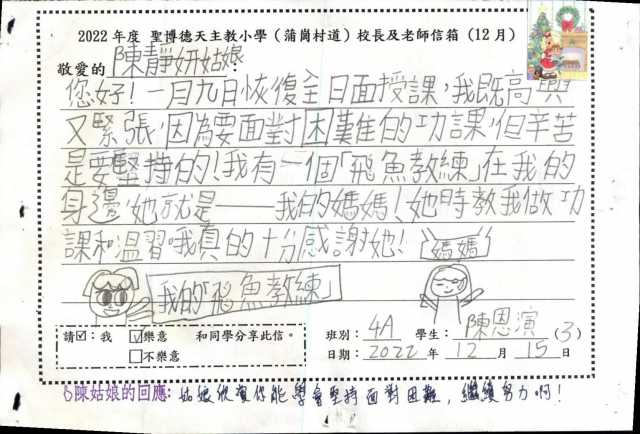 2022 年度 聖博德天主教小學（蒲崗村道）校長及老師信箱（12 月）
敬愛的 陳靜妍姑娘
您好！一月九日恢復全日面授課，我既高興
又緊張，因為要面對困難的功課，但辛苦
是要堅持的！我有一個「飛魚教練」在我的
身邊，她就是——我的媽媽！她時教我做功
課和溫習，我真的十分感謝她！ 媽媽
我的「飛魚教練」
請☑：我 ☑樂意 和同學分享此信。
□不樂意
班別： 4A 學生： 陳恩演 (3)
日期：2022 年 12 月 15 日
陳姑娘的回應：姑娘欣賞你能學會堅持面對困難，繼續努力啊！